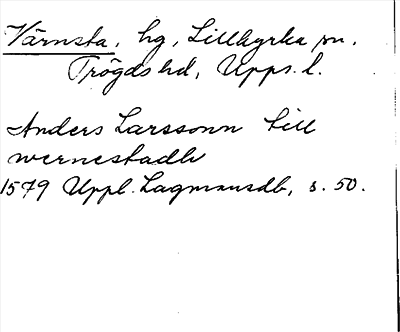 Värnsta, hg, Lillkyrka sn.
Trögds hd, Upps. l.
Anders Larssonn till
wernestadh
1579 Uppl. Lagmansdb, s. 50.